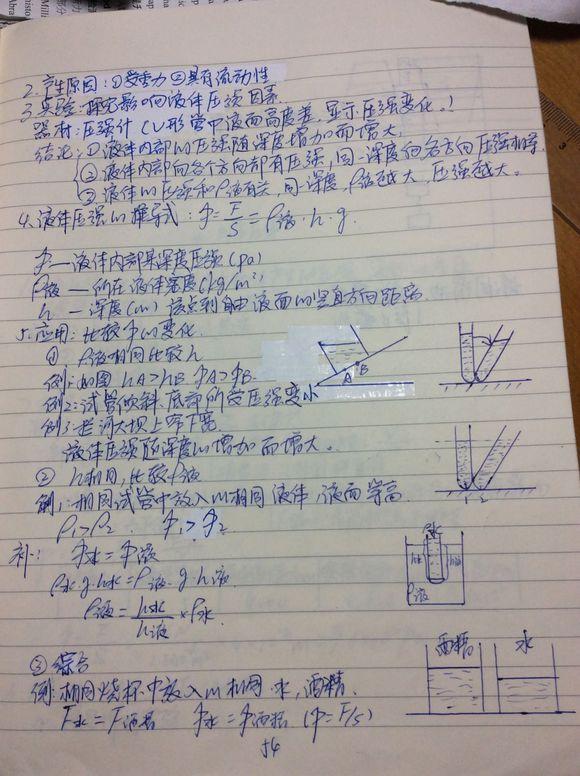 2. 产生原因：①受重力 ②具有流动性
3. 实验：探究影响液体压强因素
器材：压强计（U形管中液面高度差，显示压强变化。）
结论：①液体内部的压强随深度增加而增大，
②液体内部向各个方向都有压强，同一深度向各方向压强相等
③液体的压强和ρ液有关，同一深度，ρ液越大，压强越大。
4. 液体压强的推导式：p=F/S=ρ液·h·g.
p—液体内部某深度压强(pa)
ρ液—所在液体密度(kg/m³)
h—深度(m) 该点到自由液面的竖直方向距离
5. 应用：比较p的变化.
① ρ液相同比较h
例1：如图 hA>hB pA>pB.
A B
例2：试管倾斜.底部所受压强变小
例3：拦河大坝上窄下宽
液体压强随深度的增加而增大。
② h相同，比较ρ液
例1：相同试管中放入m相同液体，液面等高
1 2
ρ1>ρ2 p1>p2
补： p水=p液
ρ水·g·h水=ρ液·g·h液
ρ液=h水/h液×ρ水
ρ水
h水 h液
ρ液
③ 综合
例：相同烧杯中放入m相同水，酒精.
酒精 水
F水=F酒精 p水=p酒精 (p=F/S)
54